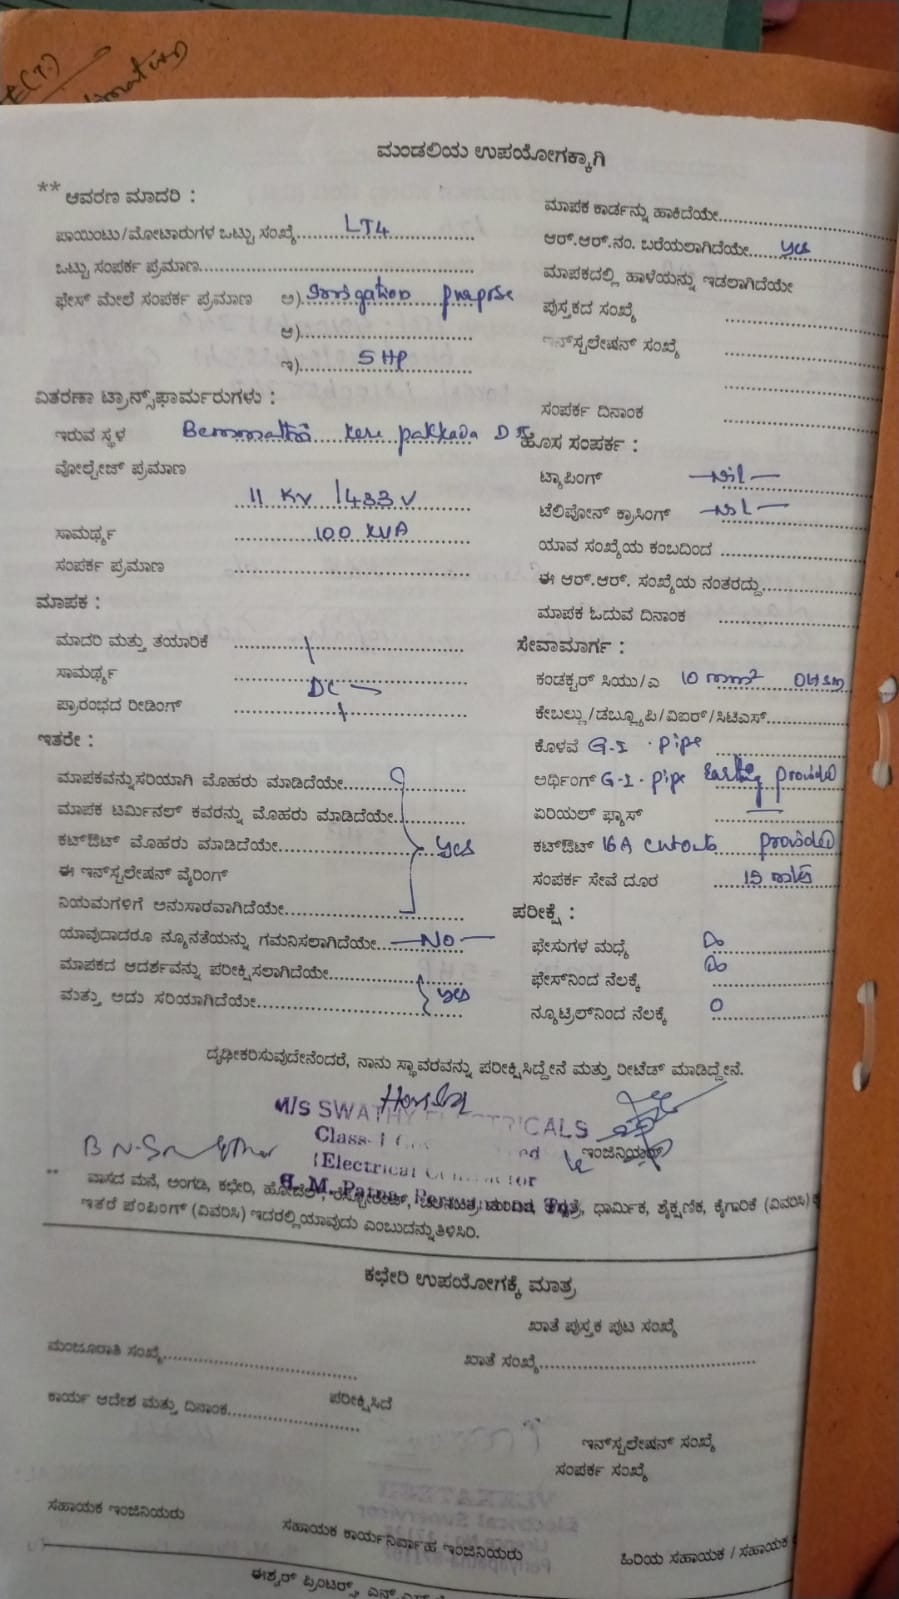 ಮಂಡಲಿಯ ಉಪಯೋಗಕ್ಕಾಗಿ
** ಆವರಣ ಮಾದರಿ :
ಪಾಯಿಂಟು/ಮೋಟಾರುಗಳ ಒಟ್ಟು ಸಂಖ್ಯೆ LT4
ಒಟ್ಟು ಸಂಪರ್ಕ ಪ್ರಮಾಣ
ಫೇಸ್ ಮೇಲೆ ಸಂಪರ್ಕ ಪ್ರಮಾಣ ಅ) Irrigation purpose
ಆ)
ಇ) 5 HP
ವಿತರಣಾ ಟ್ರಾನ್ಸ್‌ಫಾರ್ಮರುಗಳು :
ಇರುವ ಸ್ಥಳ kere pakkada
ವೋಲ್ಟೇಜ್ ಪ್ರಮಾಣ
11 KV / 433 V
ಸಾಮರ್ಥ್ಯ 100 KVA
ಸಂಪರ್ಕ ಪ್ರಮಾಣ
ಮಾಪಕ :
ಮಾದರಿ ಮತ್ತು ತಯಾರಿಕೆ
ಸಾಮರ್ಥ್ಯ DC
ಪ್ರಾರಂಭದ ರೀಡಿಂಗ್
ಇತರೇ :
ಮಾಪಕವನ್ನುಸರಿಯಾಗಿ ಮೊಹರು ಮಾಡಿದೆಯೇ
ಮಾಪಕ ಟರ್ಮಿನಲ್ ಕವರನ್ನು ಮೊಹರು ಮಾಡಿದೆಯೇ
ಕಟ್‌ಔಟ್ ಮೊಹರು ಮಾಡಿದೆಯೇ yes
ಈ ಇನ್‌ಸ್ಟಲೇಷನ್ ವೈರಿಂಗ್
ನಿಯಮಗಳಿಗೆ ಅನುಸಾರವಾಗಿದೆಯೇ
ಯಾವುದಾದರೂ ನ್ಯೂನತೆಯನ್ನು ಗಮನಿಸಲಾಗಿದೆಯೇ No
ಮಾಪಕದ ಆದರ್ಶವನ್ನು ಪರೀಕ್ಷಿಸಲಾಗಿದೆಯೇ
ಮತ್ತು ಅದು ಸರಿಯಾಗಿದೆಯೇ yes
ಮಾಪಕ ಕಾರ್ಡನ್ನು ಹಾಕಿದೆಯೇ
ಆರ್.ಆರ್.ನಂ. ಬರೆಯಲಾಗಿದೆಯೇ yes
ಮಾಪಕದಲ್ಲಿ ಹಾಳೆಯನ್ನು ಇಡಲಾಗಿದೆಯೇ
ಪುಸ್ತಕದ ಸಂಖ್ಯೆ
ಇನ್‌ಸ್ಟಲೇಷನ್ ಸಂಖ್ಯೆ
ಸಂಪರ್ಕ ದಿನಾಂಕ
ಹೊಸ ಸಂಪರ್ಕ :
ಟ್ಯಾಪಿಂಗ್ Nil
ಟೆಲಿಪೋನ್ ಕ್ರಾಸಿಂಗ್ Nil
ಯಾವ ಸಂಖ್ಯೆಯ ಕಂಬದಿಂದ
ಈ ಆರ್.ಆರ್. ಸಂಖ್ಯೆಯ ನಂತರದ್ದು
ಮಾಪಕ ಓದುವ ದಿನಾಂಕ
ಸೇವಾಮಾರ್ಗ :
ಕಂಡಕ್ಟರ್ ಸಿಯು/ಎ 10 mm²
ಕೇಬಲ್ಲು/ಡಬ್ಲ್ಯೂಪಿ/ವಿಐರ್/ಸಿಟಿಎಸ್
ಕೊಳವೆ G.I. pipe
ಅರ್ಥಿಂಗ್ G.I. pipe Earthing provided
ಏರಿಯಲ್ ಫ್ಯಾಸ್ —
ಕಟ್‌ಔಟ್ 16A cutout provided
ಸಂಪರ್ಕ ಸೇವೆ ದೂರ 15
ಪರೀಕ್ಷೆ :
ಫೇಸುಗಳ ಮಧ್ಯೆ ∞
ಫೇಸ್‌ನಿಂದ ನೆಲಕ್ಕೆ ∞
ನ್ಯೂಟ್ರಿಲ್‌ನಿಂದ ನೆಲಕ್ಕೆ 0
ದೃಢೀಕರಿಸುವುದೇನೆಂದರೆ, ನಾನು ಸ್ಥಾವರವನ್ನು ಪರೀಕ್ಷಿಸಿದ್ದೇನೆ ಮತ್ತು ರೀಟೆಡ್ ಮಾಡಿದ್ದೇನೆ.
M/s SWATHY ELECTRICALS
Class-I
Electrical Contractor
ಇಂಜಿನಿಯರ್
** ವಾಸದ ಮನೆ, ಅಂಗಡಿ, ಕಛೇರಿ, ಹೋಟೆಲ್, ಧಾರ್ಮಿಕ, ಶೈಕ್ಷಣಿಕ, ಕೈಗಾರಿಕೆ (ವಿವರಿಸಿ)
ಇತರೆ ಪಂಪಿಂಗ್ (ವಿವರಿಸಿ) ಇದರಲ್ಲಿಯಾವುದು ಎಂಬುದನ್ನುತಿಳಿಸಿರಿ.
ಕಛೇರಿ ಉಪಯೋಗಕ್ಕೆ ಮಾತ್ರ
ಖಾತೆ ಪುಸ್ತಕ ಪುಟ ಸಂಖ್ಯೆ
ಮಂಜೂರಾತಿ ಸಂಖ್ಯೆ
ಖಾತೆ ಸಂಖ್ಯೆ
ಪರೀಕ್ಷಿಸಿದೆ
ಕಾರ್ಯ ಆದೇಶ ಮತ್ತು ದಿನಾಂಕ
ಇನ್‌ಸ್ಟಲೇಷನ್ ಸಂಖ್ಯೆ
ಸಂಪರ್ಕ ಸಂಖ್ಯೆ
ಸಹಾಯಕ ಇಂಜಿನಿಯರು
ಸಹಾಯಕ ಕಾರ್ಯನಿರ್ವಾಹ ಇಂಜಿನಿಯರು
ಹಿರಿಯ ಸಹಾಯಕ / ಸಹಾಯಕ
ಈಶ್ವರ್ ಪ್ರಿಂಟರ್ಸ್,